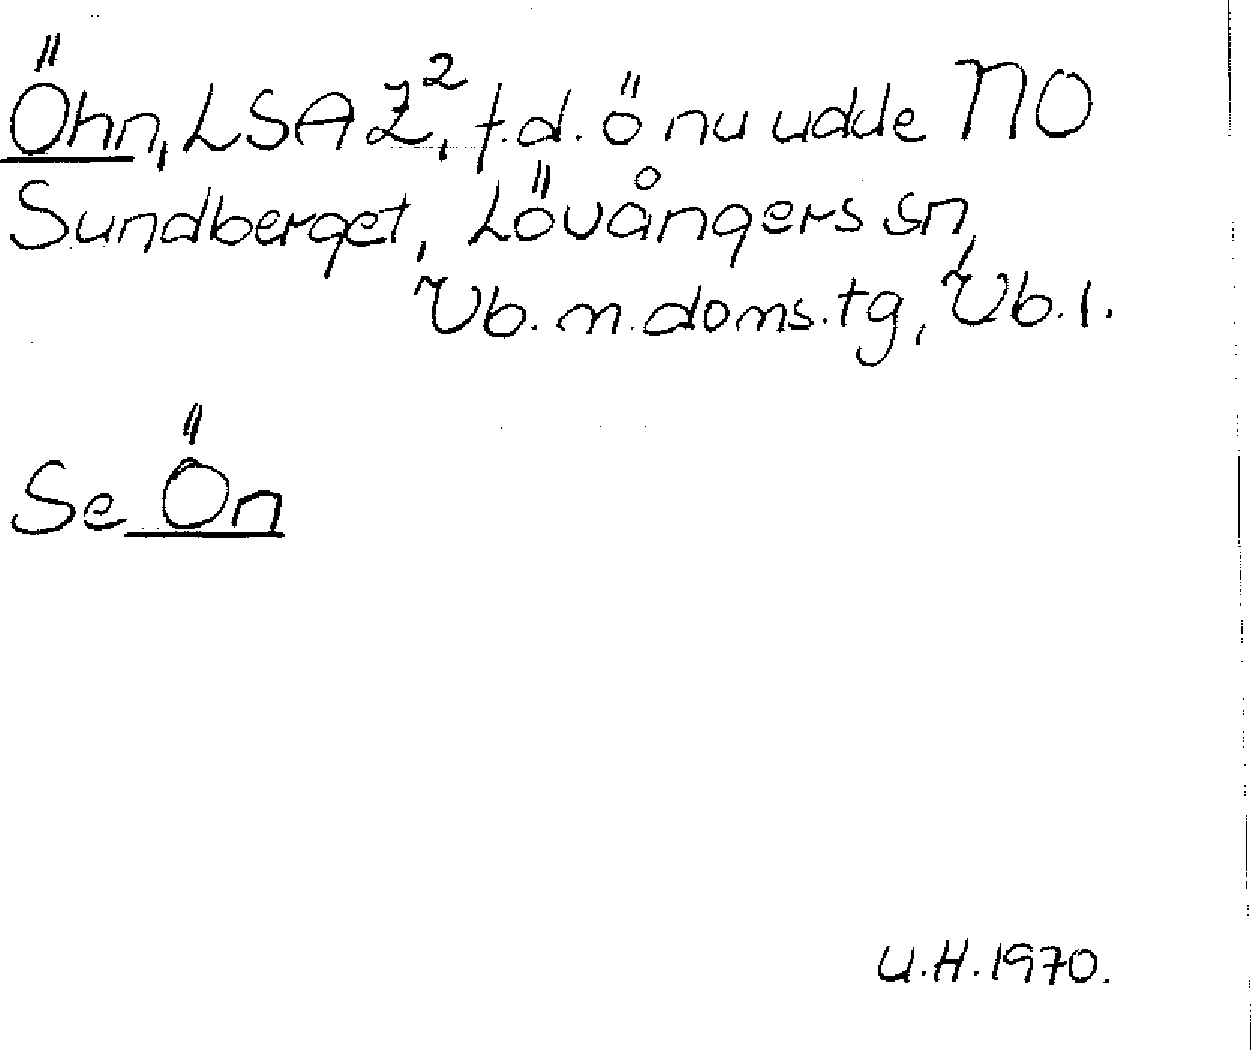 Öhn, LSA Z², f.d. ö nu udde NO
Sundberget, Lövångers sn,
Vb. n. doms. tg, Vb. l.
Se Ön
U.H. 1970.